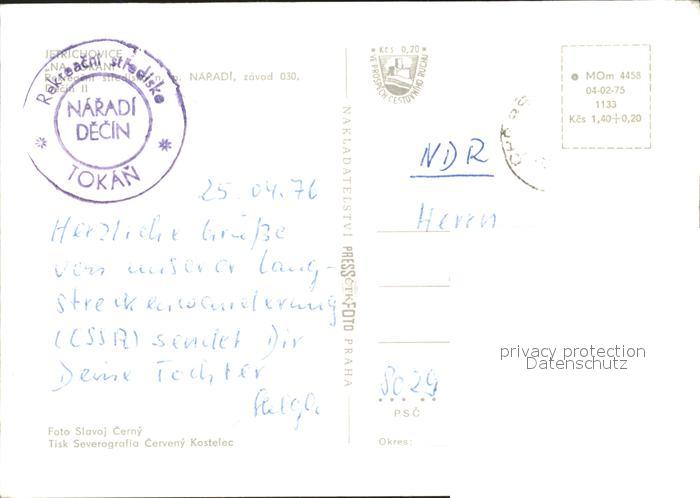 JETŘICHOVICE
"NA TOKÁNI"
Rekreační středisko n. p. NÁŘADÍ, závod 030,
Děčín II
Rekreační středisko
NÁŘADÍ
DĚČÍN
TOKÁŇ
25.04.76
Herzliche Grüße
von unserer Lang-
streckenwanderung
(CSSR) sendet Dir
Deine Tochter
Helga
Foto Slavoj Černý
Tisk Severografia Červený Kostelec
NAKLADATELSTVÍ PRESSFOTO PRAHA
ČTK
Kčs 0,20
VE PROSPĚCH CESTOVNÍHO RUCHU
MOm 4458
04-02-75
1133
Kčs 1,40+0,20
NDR
Herrn
privacy protection
Datenschutz
8029
PSČ
Okres: